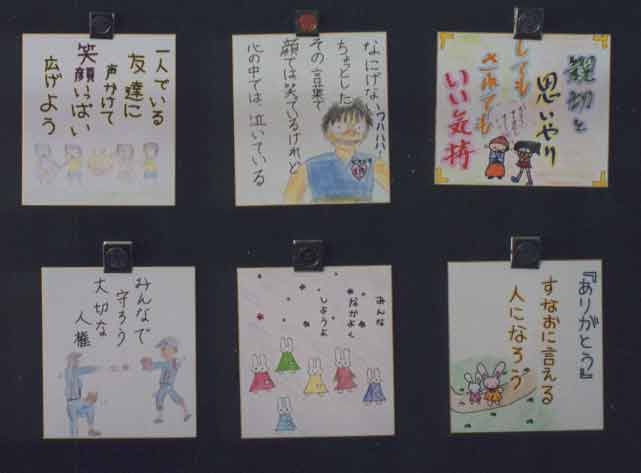 一人でいる
友達に
声かけて
笑顔いっぱい
広げよう
なにげない
ちょっとした
その言葉で
顔では笑っているけれど
心の中では、泣いている
ワハハハハ
親切と
思いやり
しても
されても
いい気持
みんなで
守ろう
大切な
人権
みんな
なかよく
しようよ
『ありがとう』
すなおに言える
人になろう